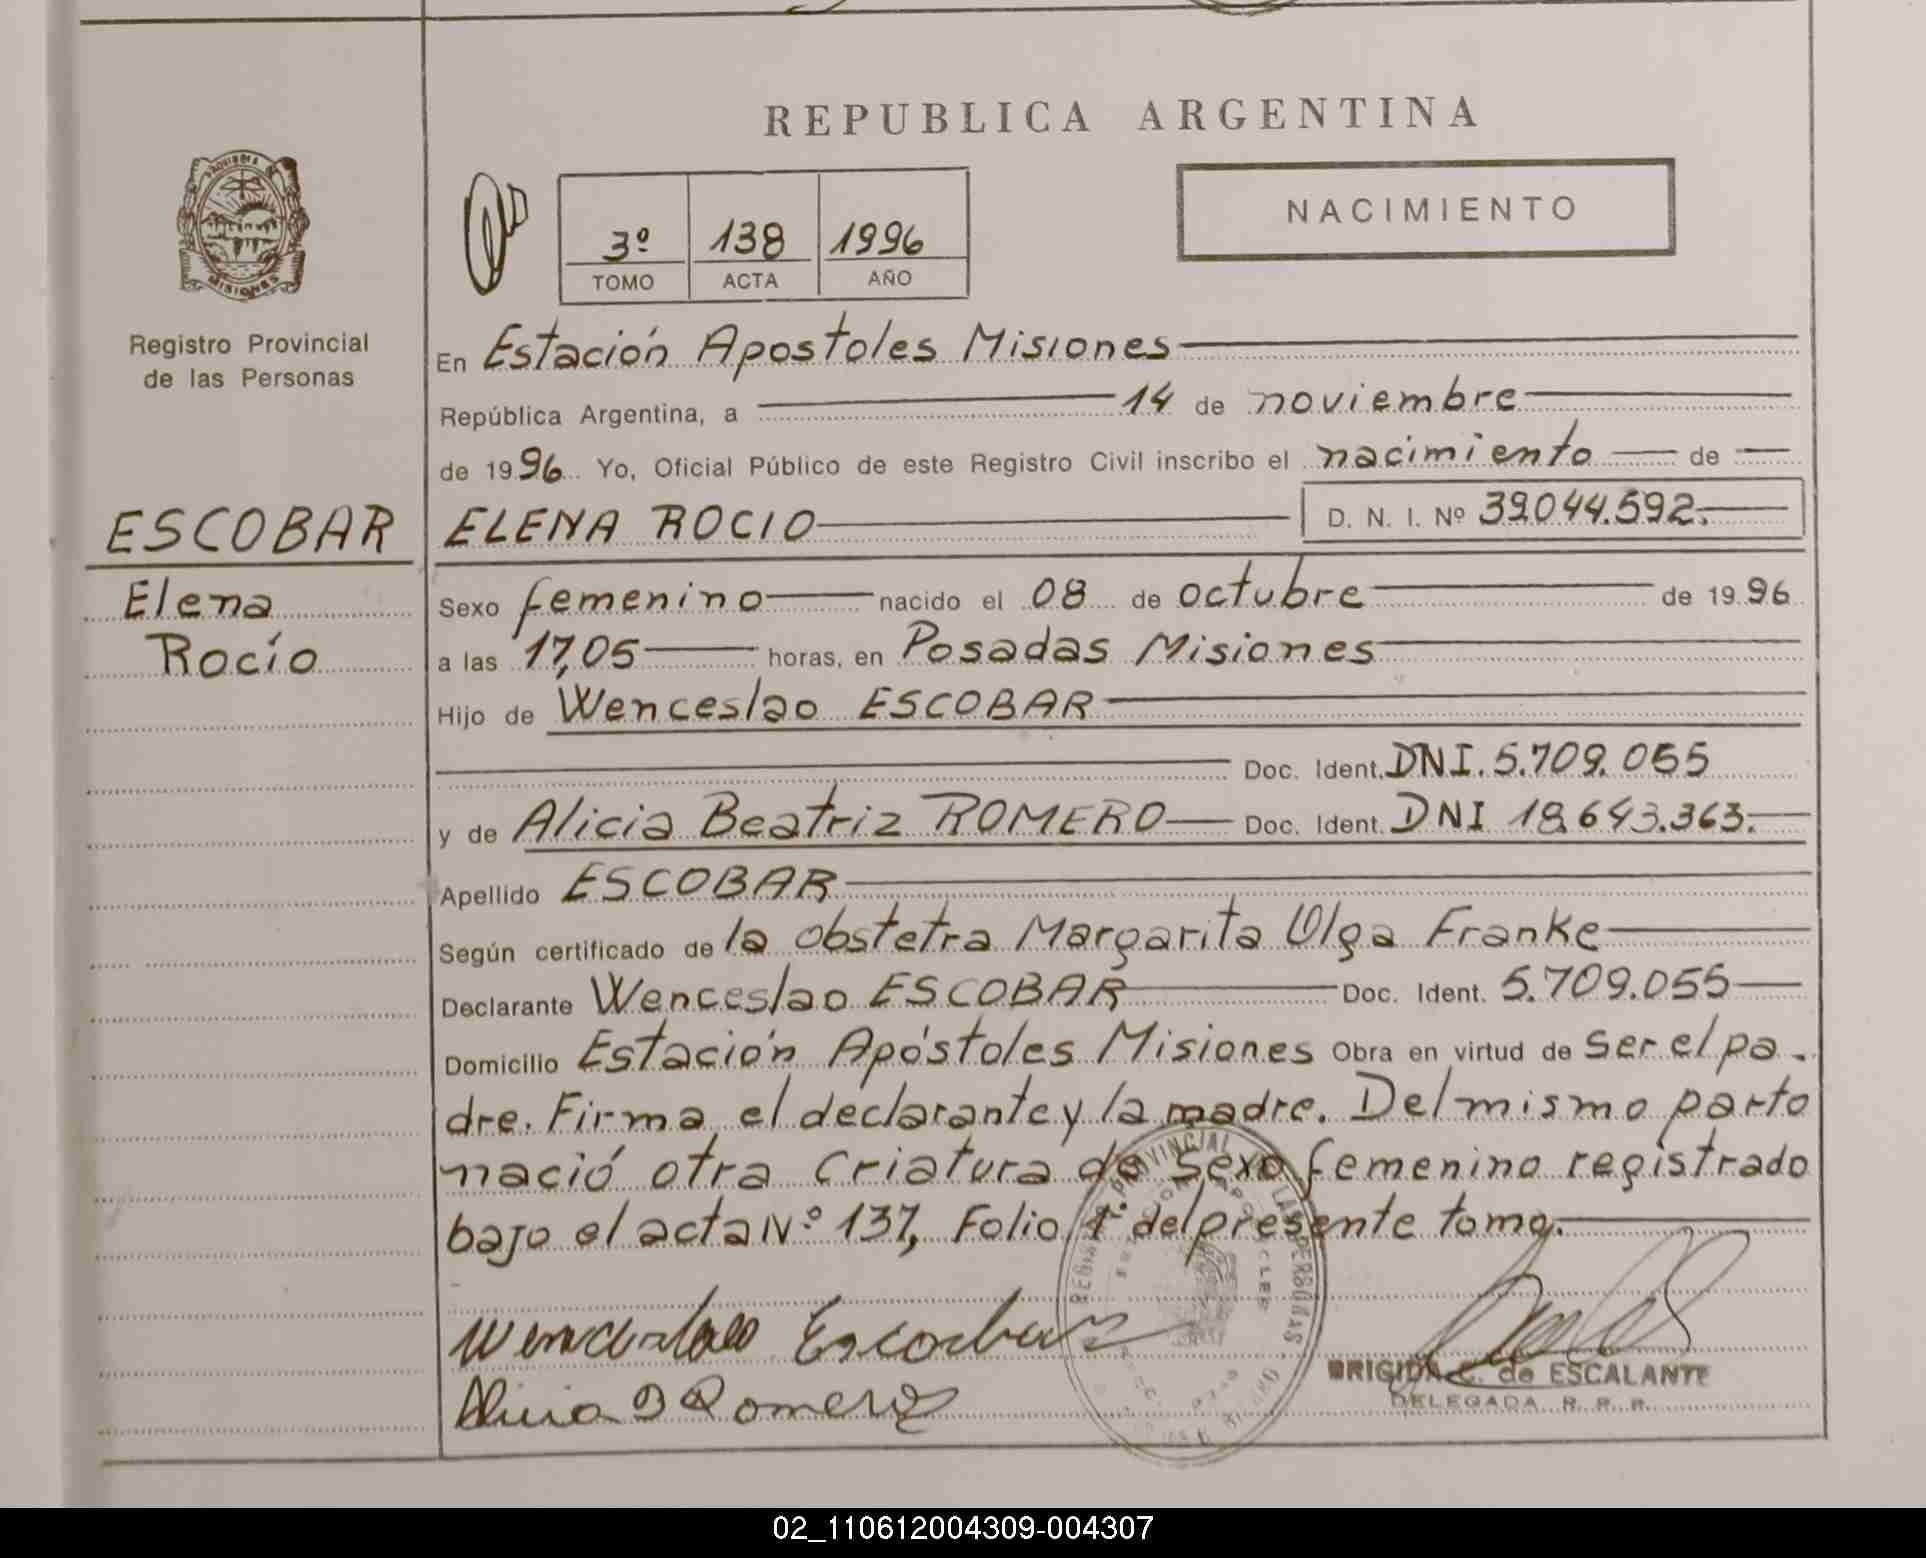 REPUBLICA ARGENTINA
PROVINCIA DE
MISIONES
Registro Provincial
de las Personas
3º 138 1996
TOMO ACTA AÑO
NACIMIENTO
En Estación Apostoles Misiones
República Argentina, a 14 de noviembre
de 1996 Yo, Oficial Público de este Registro Civil inscribo el nacimiento de
ESCOBAR
Elena
Rocío
ELENA ROCIO D. N. I. Nº 39.044.592.
Sexo femenino nacido el 08 de octubre de 1996
a las 17,05 horas, en Posadas Misiones
Hijo de Wenceslao ESCOBAR
Doc. Ident. DNI. 5.709.055
y de Alicia Beatriz ROMERO Doc. Ident. DNI 18.643.363.
Apellido ESCOBAR
Según certificado de la obstetra Margarita Olga Franke
Declarante Wenceslao ESCOBAR Doc. Ident. 5.709.055
Domicilio Estación Apóstoles Misiones Obra en virtud de ser el pa-
dre. Firma el declarante y la madre. Del mismo parto
nació otra criatura de sexo femenino registrado
bajo el acta Nº 137, Folio 1º del presente tomo.
Wenceslao Escobar
Alicia B Romero
BRIGIDA C. de ESCALANTE
DELEGADA R. P. P.
02_110612004309-004307